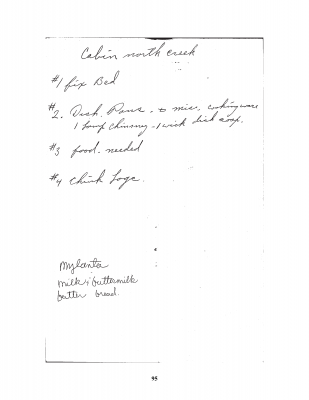 Cabin north creek
#1 fix Bed
#2. Dish. Pans. & misc. cooking ware
1 Lamp chimney - 1 wick dish soap.
#3 food. needed
#4 Chink Logs
Mylanta
milk & buttermilk
butter bread.
95